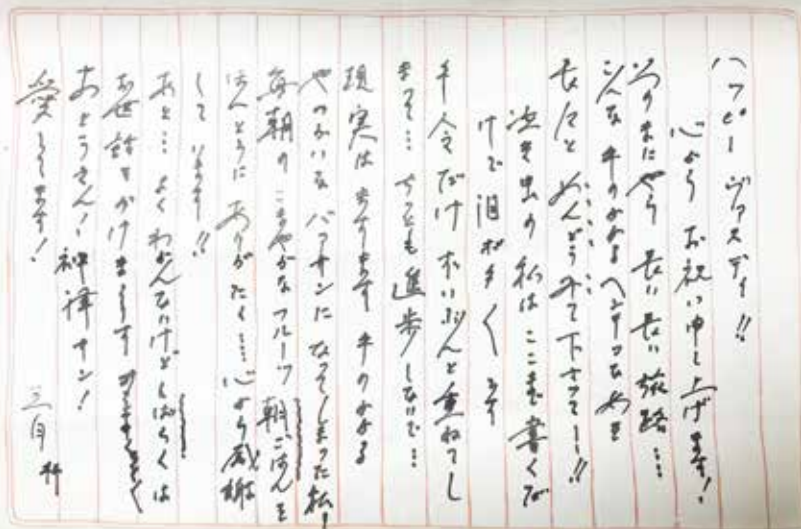 ハッピー ヴァスデイ!!
心から お祝い申し上げます!
いつのまにやら 長い長い旅路…
こんな 手のかかる ヘンテコなやつを
長々と めんどうみて下さって―!!
泣き虫の 私は ここまで書くだ
けで 泪がポタポタ
年令だけ ずいぶんと重ねてし
まって… ちっとも進歩しないで…
現実は ますます 手のかかる
やっかいな バアサンに なってしまった私!
毎朝の こまやかな フルーツ 朝ごはんを
ほんとうに ありがたく…… 心から感謝
して います!!
あと… よく わかんないけど しばらくは
お世話を かけま~す
おとうさん! 神様 サン!
愛してます!
三月